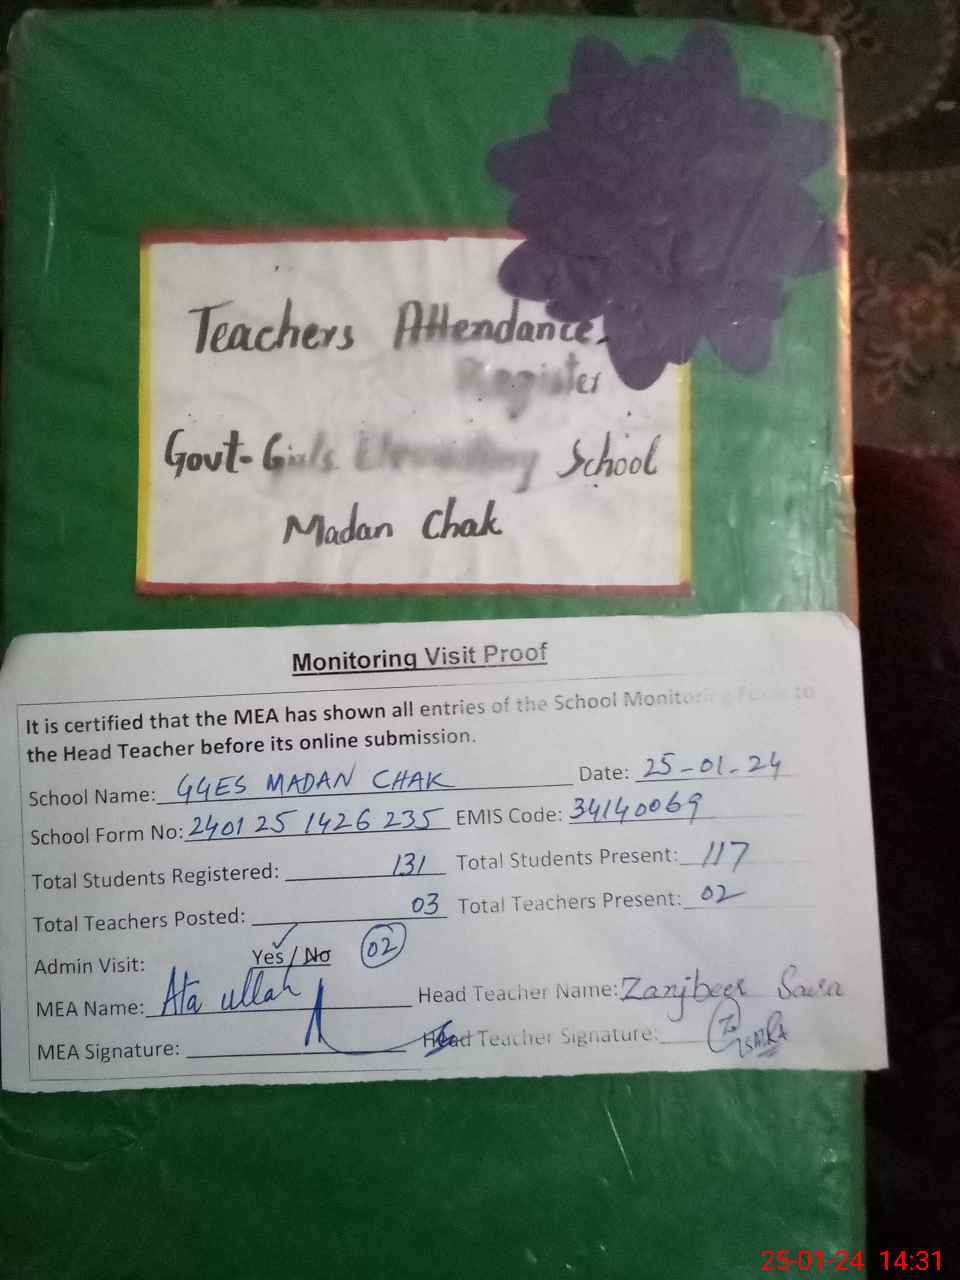 Teachers Attendance
Register
Govt- Girls School
Madan Chak
Monitoring Visit Proof
It is certified that the MEA has shown all entries of the School Monitoring Form to
the Head Teacher before its online submission.
School Name: GGES MADAN CHAK Date: 25-01-24
School Form No: 2401 25 1426 235 EMIS Code: 34140069
Total Students Registered: 131 Total Students Present: 117
Total Teachers Posted: 03 Total Teachers Present: 02
Admin Visit: Yes / No 02
MEA Name: Ata ullah Head Teacher Name: Zanjbeer Saira
MEA Signature: Head Teacher Signature:
25-01-24 14:31